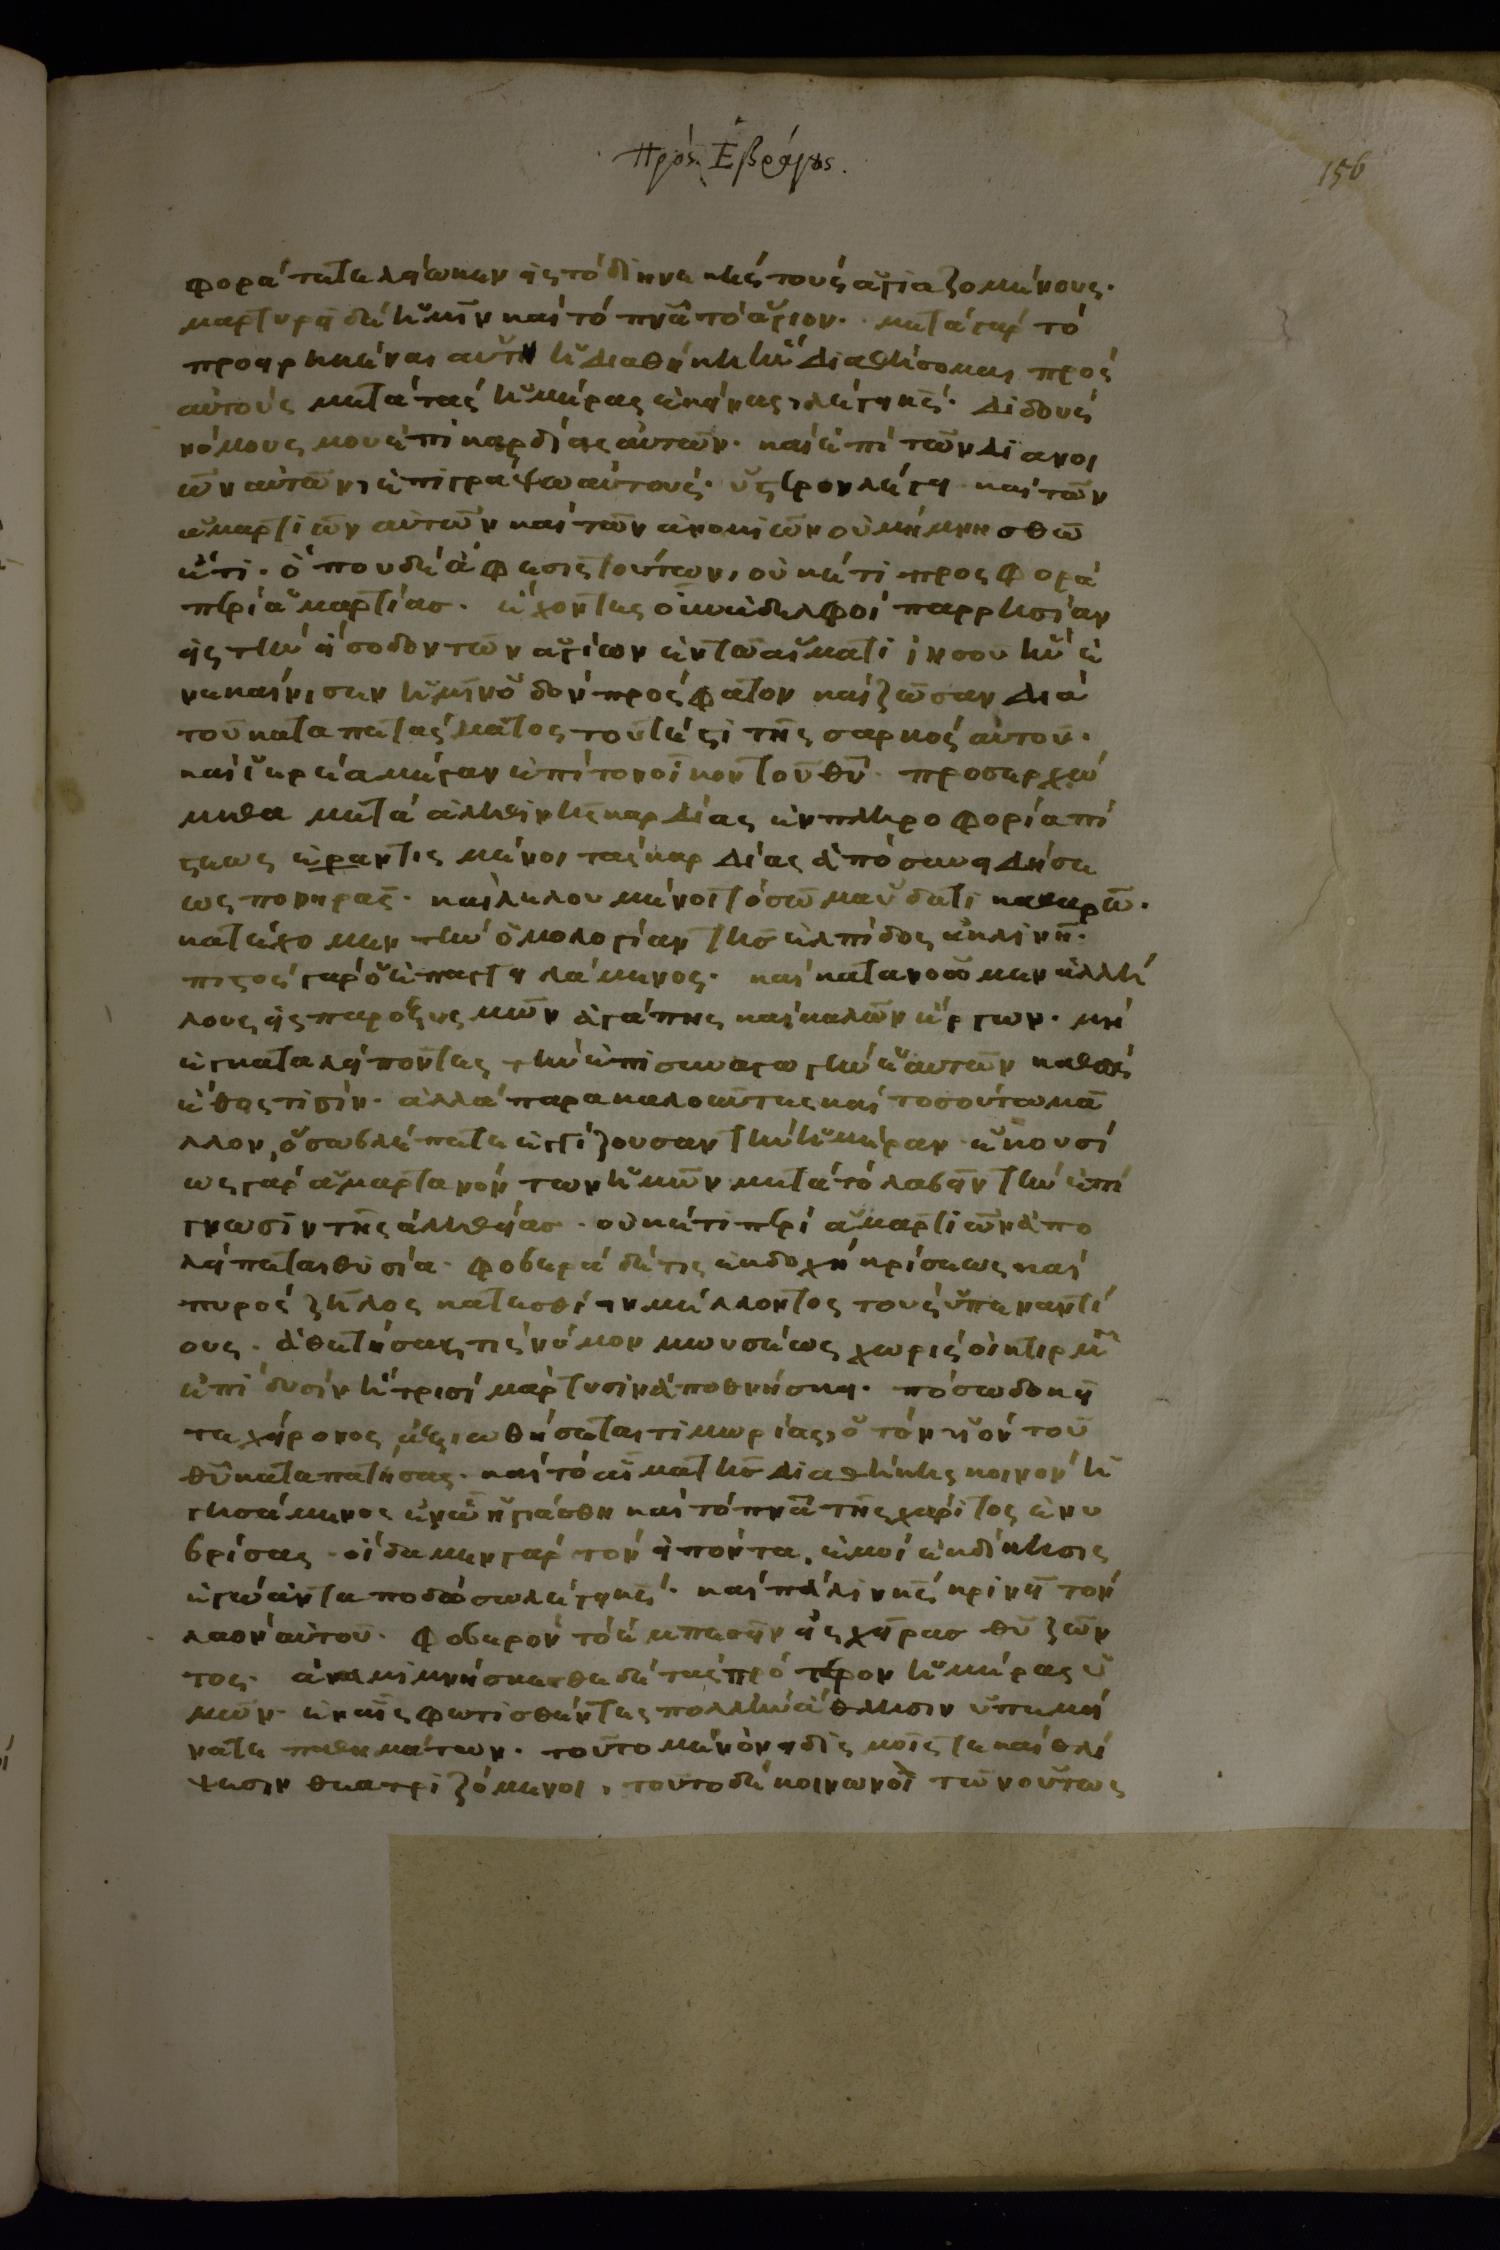 Πρὸς Ἑβραίους.
156
φορᾶ τετελείωκεν εἰς τὸ διηνεκὲς τοὺς ἁγιαζομένους.
μαρτυρεῖ δὲ ἡμῖν καὶ τὸ πνᾶ τὸ ἅγιον. μετὰ γὰρ τὸ
προειρηκέναι αὕτη ἡ διαθήκη ἣν διαθήσομαι πρὸς
αὐτοὺς μετὰ τὰς ἡμέρας ἐκείνας, λέγει κς. διδοὺς
νόμους μου ἐπὶ καρδίας αὐτῶν. καὶ ἐπὶ τῶν διανοι
ῶν αὐτῶν, ἐπιγράψω αὐτούς. ὕστερον λέγει καὶ τῶν
ἁμαρτιῶν αὐτῶν καὶ τῶν ἀνομιῶν οὐ μὴ μνησθῶ
ἔτι. ὅπου δὲ ἄφεσις τούτων, οὐκέτι προσφορὰ
περὶ ἁμαρτίας. ἔχοντες οὖν ἀδελφοὶ παρρησίαν
εἰς τὴν εἴσοδον τῶν ἁγίων ἐν τῶ αἵματι ἰησοῦ ἣν ἐ
νεκαίνισεν ἡμῖν ὁδὸν πρόσφατον καὶ ζῶσαν διὰ
τοῦ καταπετάσματος τουτέστι τῆς σαρκὸς αὐτοῦ.
καὶ ἱερέα μέγαν ἐπὶ τὸν οἶκον τοῦ θυ. προσερχώ
μεθα μετὰ ἀληθινῆς καρδίας ἐν πληροφορία πί
στεως ἐραντισμένοι τὰς καρδίας ἀπὸ συνειδήσε
ως πονηρᾶς. καὶ λελουμένοι τὸ σῶμα ὕδατι καθαρῶ.
κατέχομεν τὴν ὁμολογίαν τῆς ἐλπίδος ἀκλινῆ.
πιστὸς γὰρ ὁ ἐπαγγειλάμενος. καὶ κατανοῶμεν ἀλλή
λους εἰς παροξυσμῶν ἀγάπης καὶ καλῶν ἔργων. μὴ
ἐγκαταλείποντες τὴν ἐπισυναγωγὴν ἑαυτῶν καθὼς
ἔθος τισίν. ἀλλὰ παρακαλοῦντες καὶ τοσούτω μᾶ
λλον, ὅσω βλέπετε ἐγγίζουσαν τὴν ἡμέραν ἑκουσί
ως γὰρ ἁμαρτανόντων ἡμῶν μετὰ τὸ λαβεῖν τὴν ἐπί
γνωσιν τῆς ἀληθείας. οὐκέτι περὶ ἁμαρτιῶν ἀπο
λείπεται θυσία. φοβερὰ δέ τις ἐκδοχὴ κρίσεως καὶ
πυρὸς ζῆλος κατεσθίειν μέλλοντος τοὺς ὑπεναντί
ους. ἀθετήσας τις νόμον μωυσέως χωρὶς οἰκτιρμῶν
ἐπὶ δυσὶν ἢ τρισὶ μάρτυσιν ἀποθνήσκει. πόσω δοκεῖ
τε χείρονος ἀξιωθήσεται τιμωρίας, ὁ τὸν υἱὸν τοῦ
θυ καταπατήσας. καὶ τὸ αἷμα τῆς διαθήκης κοινὸν ἡ
γησάμενος ἐν ὧ ἡγιάσθη καὶ τὸ πνᾶ τῆς χάριτος ἐνυ
βρίσας. οἴδαμεν γὰρ τὸν εἰπόντα, ἐμοὶ ἐκδίκησις
ἐγὼ ἀνταποδώσω λέγει κς. καὶ πάλιν κς κρινεῖ τὸν
λαὸν αὐτοῦ. φοβερὸν τὸ ἐμπεσεῖν εἰς χεῖρας θυ ζῶν
τος. ἀναμιμνήσκεσθε δὲ τὰς πρότερον ἡμέρας ὑ
μῶν. ἐν αἷς φωτισθέντες πολλὴν ἄθλησιν ὑπεμεί
νατε παθημάτων. τοῦτο μὲν ὀνειδισμοῖς τε καὶ θλί
ψεσιν θεατριζόμενοι, τοῦτο δὲ κοινωνοὶ τῶν οὕτως